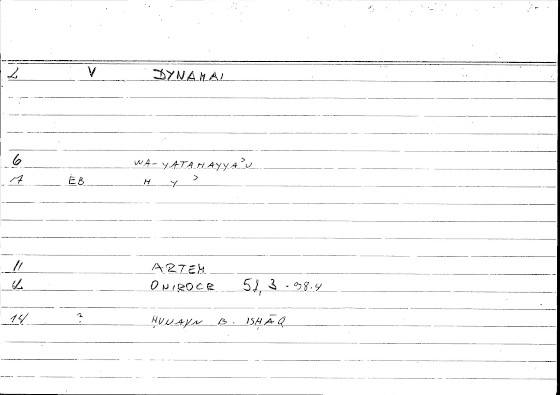 2 V DYNAMAI
6 WA-YATAHAYYAʾU
7 EB H Y ʾ
11 ARTEM
12 ONIROCR 58, 3 - 98.4
14 ? ḤUNAYN B. ISḤĀQ